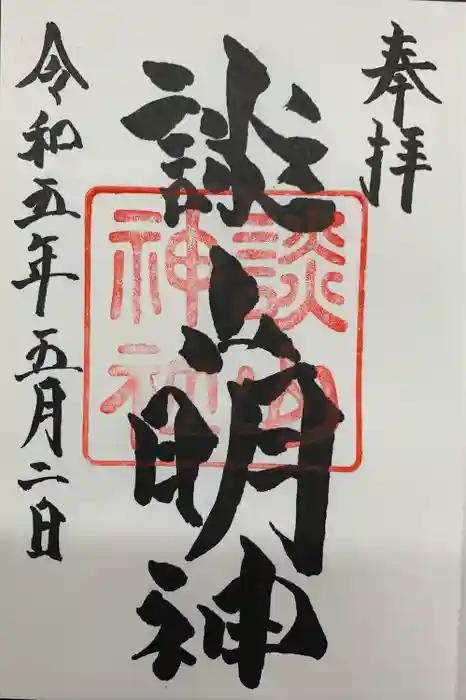 奉拝
談山明神
談山
神社
令和五年五月二日